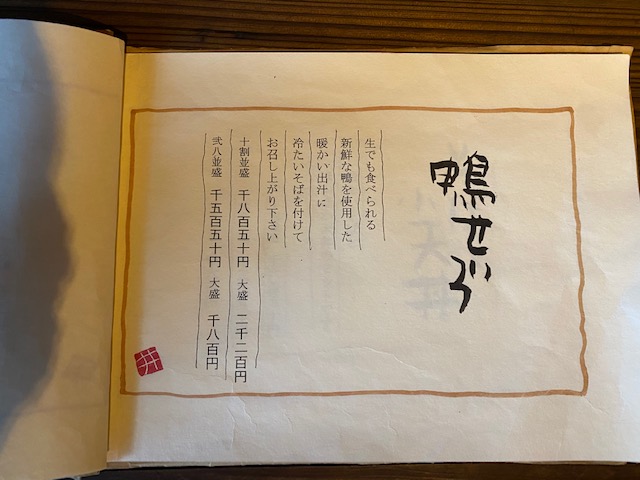 鴨せいろ
生でも食べられる
新鮮な鴨を使用した
暖かい出汁に
冷たいそばを付けて
お召し上がり下さい
十割並盛 千八百五十円 大盛 二千二百円
弐八並盛 千五百五十円 大盛 千八百円